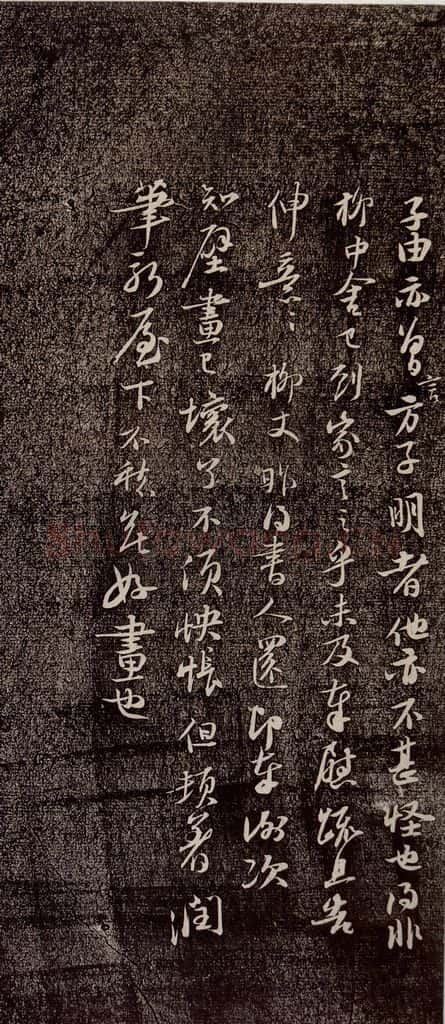 子由亦曾言方子明者他亦不甚怪也得非
柳中舍已到家言之乎未及奉慰疏且告
伸意〻柳丈昨得書人還即奉謝次
知壁畫已壞了不須怏悵但頓著潤
筆新屋下不愁無好畫也